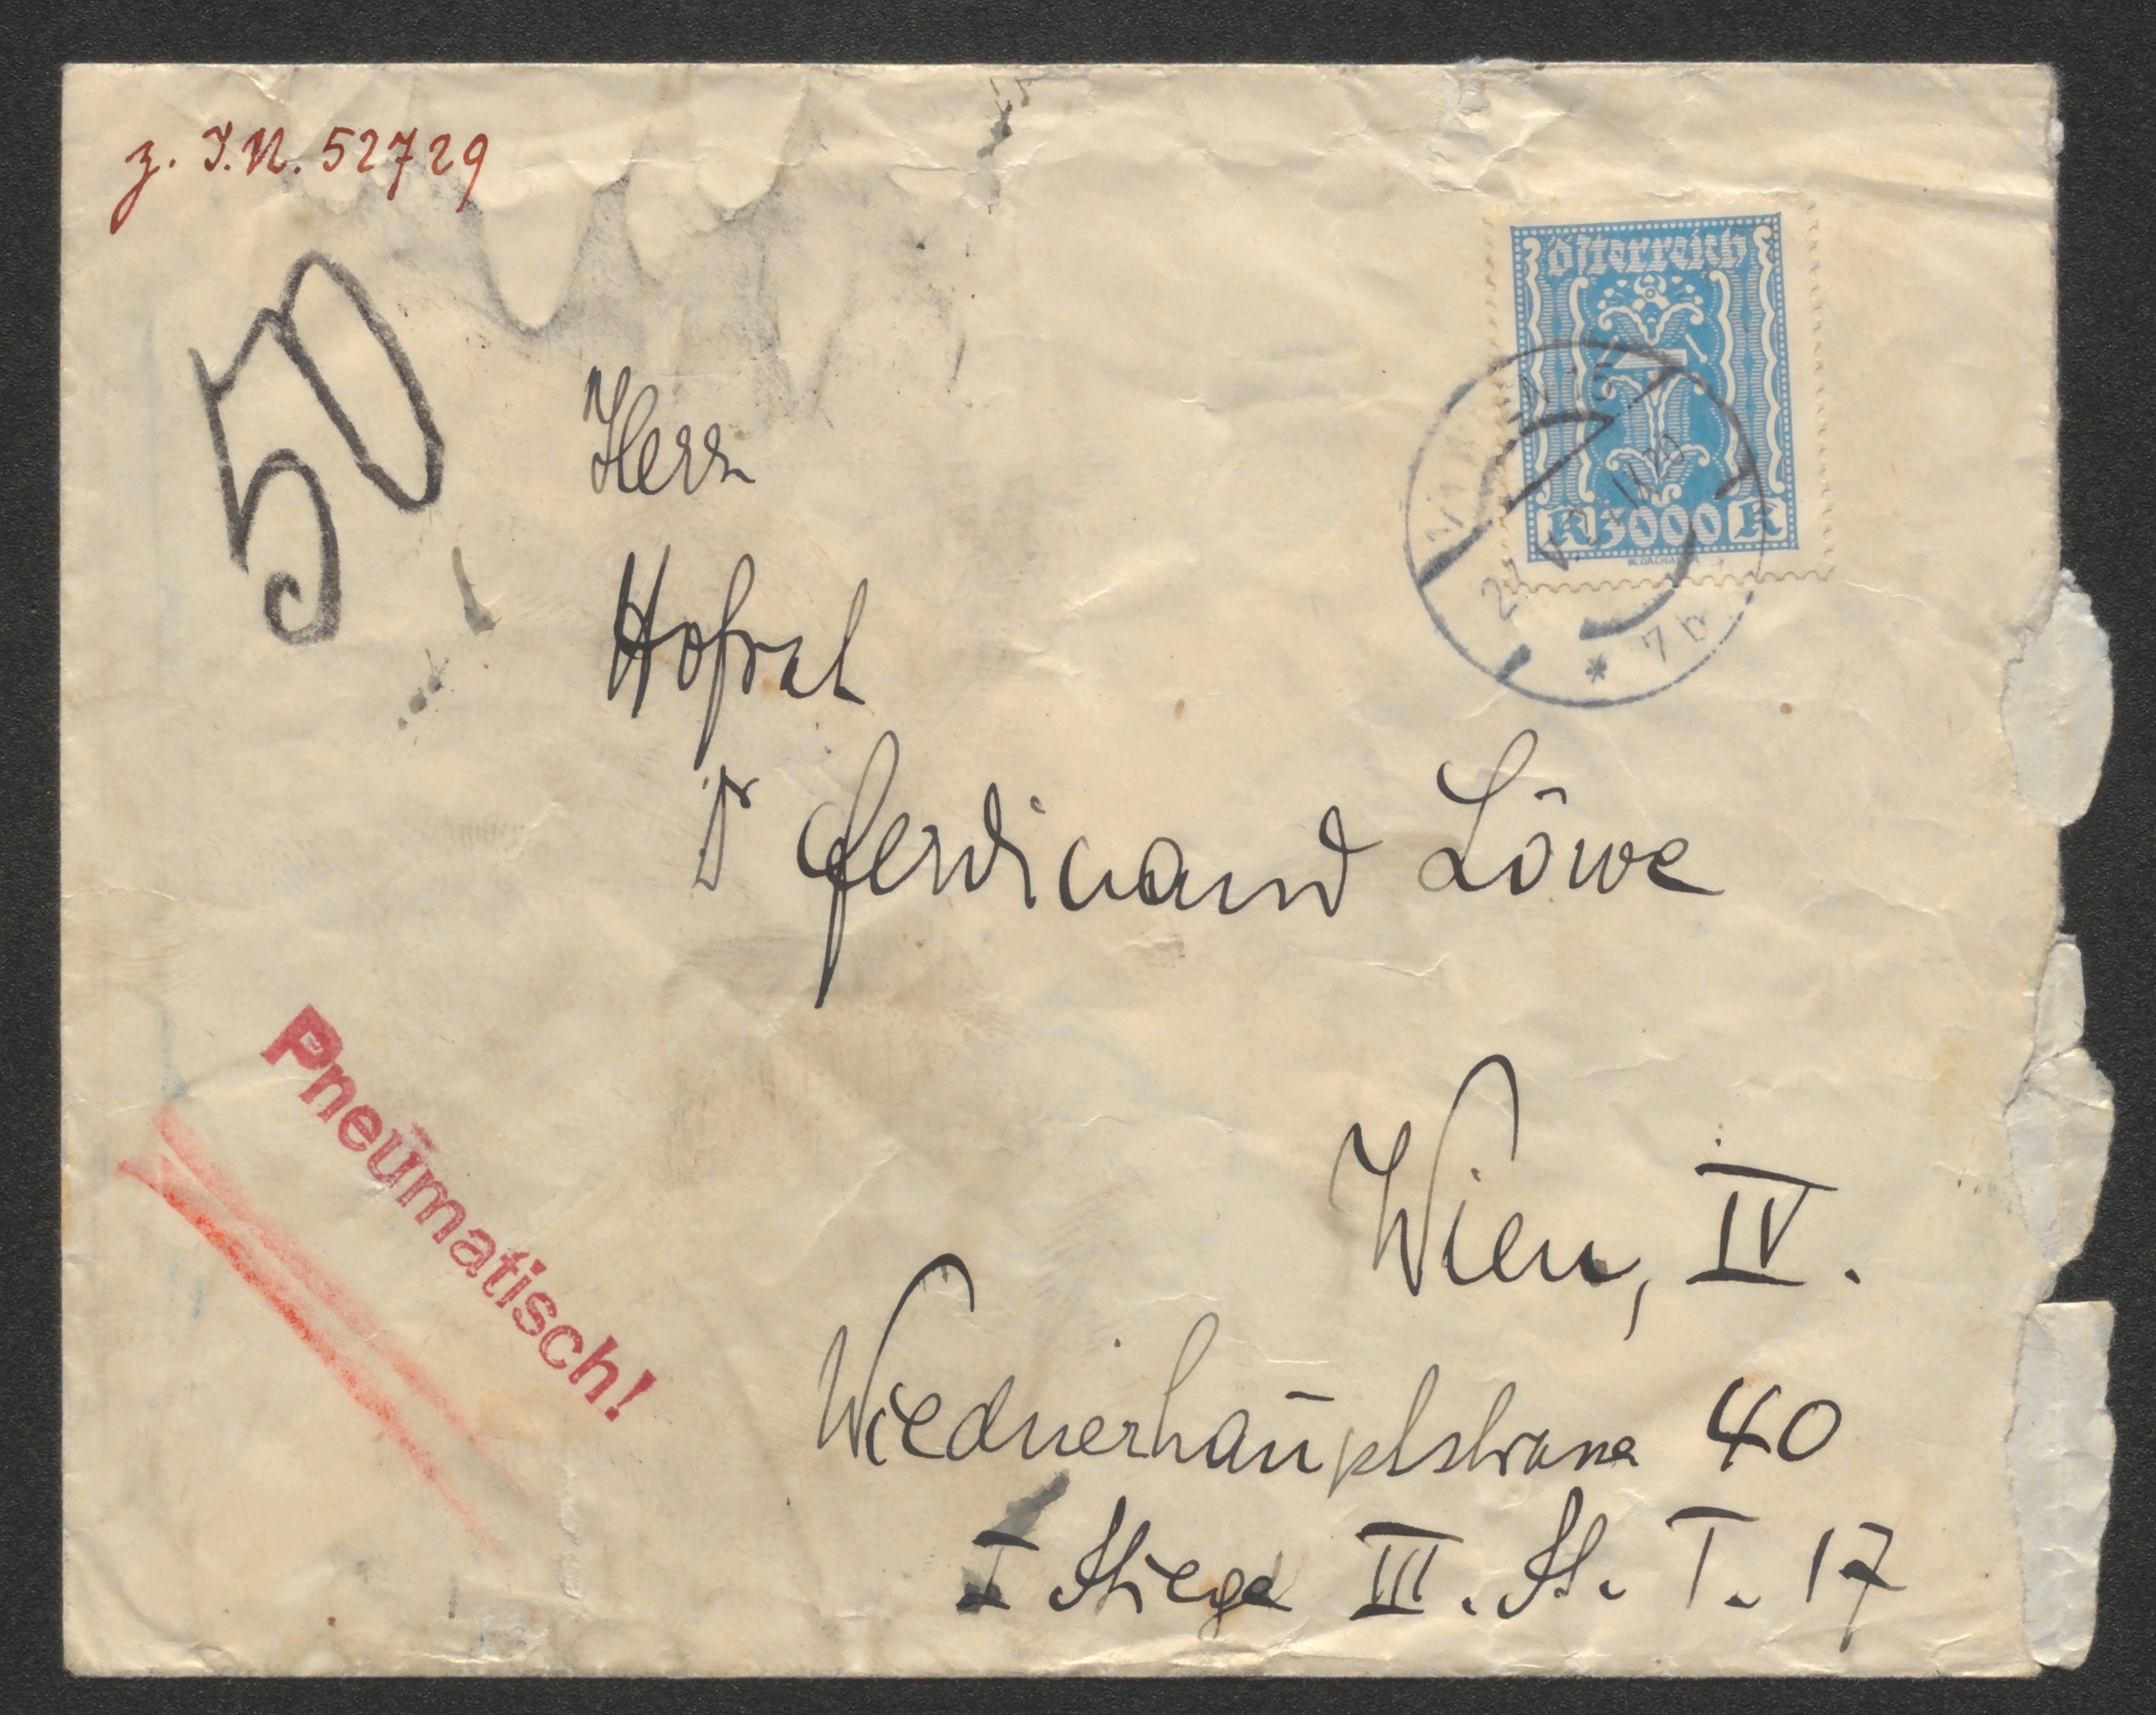 z. I.N. 52729
50
Österreich
K 3000 K
* 7b
Herr
Hofrat
Dr Ferdinand Löwe
Pneumatisch!
Wien, IV.
Wiednerhaūptstrasse 40
I Stiege III. St. T. 17